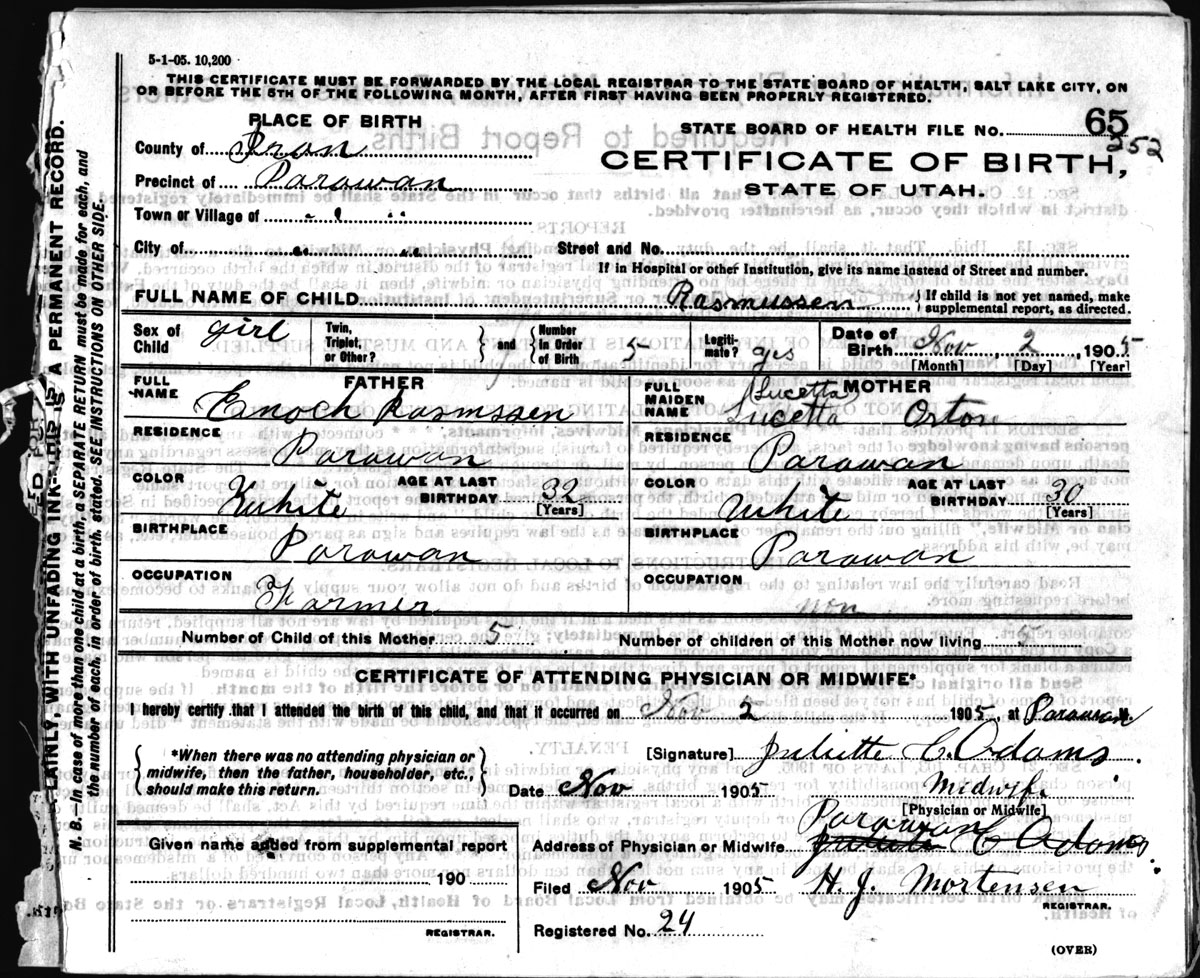 5-1-05. 10,200
THIS CERTIFICATE MUST BE FORWARDED BY THE LOCAL REGISTRAR TO THE STATE BOARD OF HEALTH, SALT LAKE CITY, ON
OR BEFORE THE 5TH OF THE FOLLOWING MONTH, AFTER FIRST HAVING BEEN PROPERLY REGISTERED.
PLACE OF BIRTH
STATE BOARD OF HEALTH FILE No. 65
252
County of Iron
CERTIFICATE OF BIRTH,
Precinct of Parowan
STATE OF UTAH.
Town or Village of " "
City of " " Street and No.
If in Hospital or other Institution, give its name instead of Street and number.
FULL NAME OF CHILD Rasmussen { If child is not yet named, make
supplemental report, as directed.
Sex of Child girl Twin, Triplet, or Other? } and { Number in Order of Birth 5 Legiti- mate? yes Date of Birth Nov 2, 1905
[Month] [Day] [Year]
FATHER MOTHER
FULL NAME Enoch Rasmssen FULL MAIDEN NAME (Lucetta) Lucetta Orton
RESIDENCE Parowan RESIDENCE Parowan
COLOR White AGE AT LAST BIRTHDAY 32 [Years] COLOR White AGE AT LAST BIRTHDAY 30 [Years]
BIRTHPLACE Parowan BIRTHPLACE Parowan
OCCUPATION Farmer OCCUPATION non
Number of Child of this Mother 5 Number of children of this Mother now living 5
CERTIFICATE OF ATTENDING PHYSICIAN OR MIDWIFE*
I hereby certify that I attended the birth of this child, and that it occurred on Nov 2 1905, at Parowan
{ *When there was no attending physician or
midwife, then the father, householder, etc.,
should make this return. }
[Signature] Juliette C. Adams.
Date Nov 1905 Midwife
[Physician or Midwife]
Parowan
Address of Physician or Midwife C Adams.
Given name added from supplemental report
190
REGISTRAR.
Filed Nov 1905 H. J. Mortensen
REGISTRAR.
Registered No. 24
(OVER)
PLAINLY, WITH UNFADING INK—THIS IS A PERMANENT RECORD.
N. B.—In case of more than one child at a birth, a SEPARATE RETURN must be made for each, and
the number of each, in order of birth, stated. SEE INSTRUCTIONS ON OTHER SIDE.